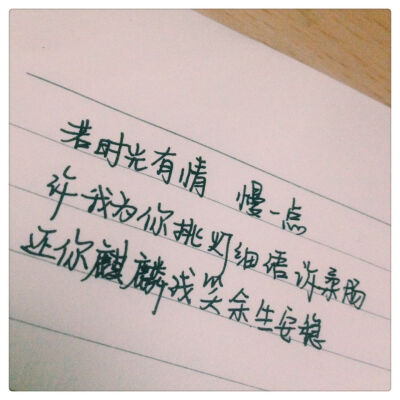 若时光有情 慢一点
许我为你挑灯细语诉柔肠
还你麒麟我笑余生安稳